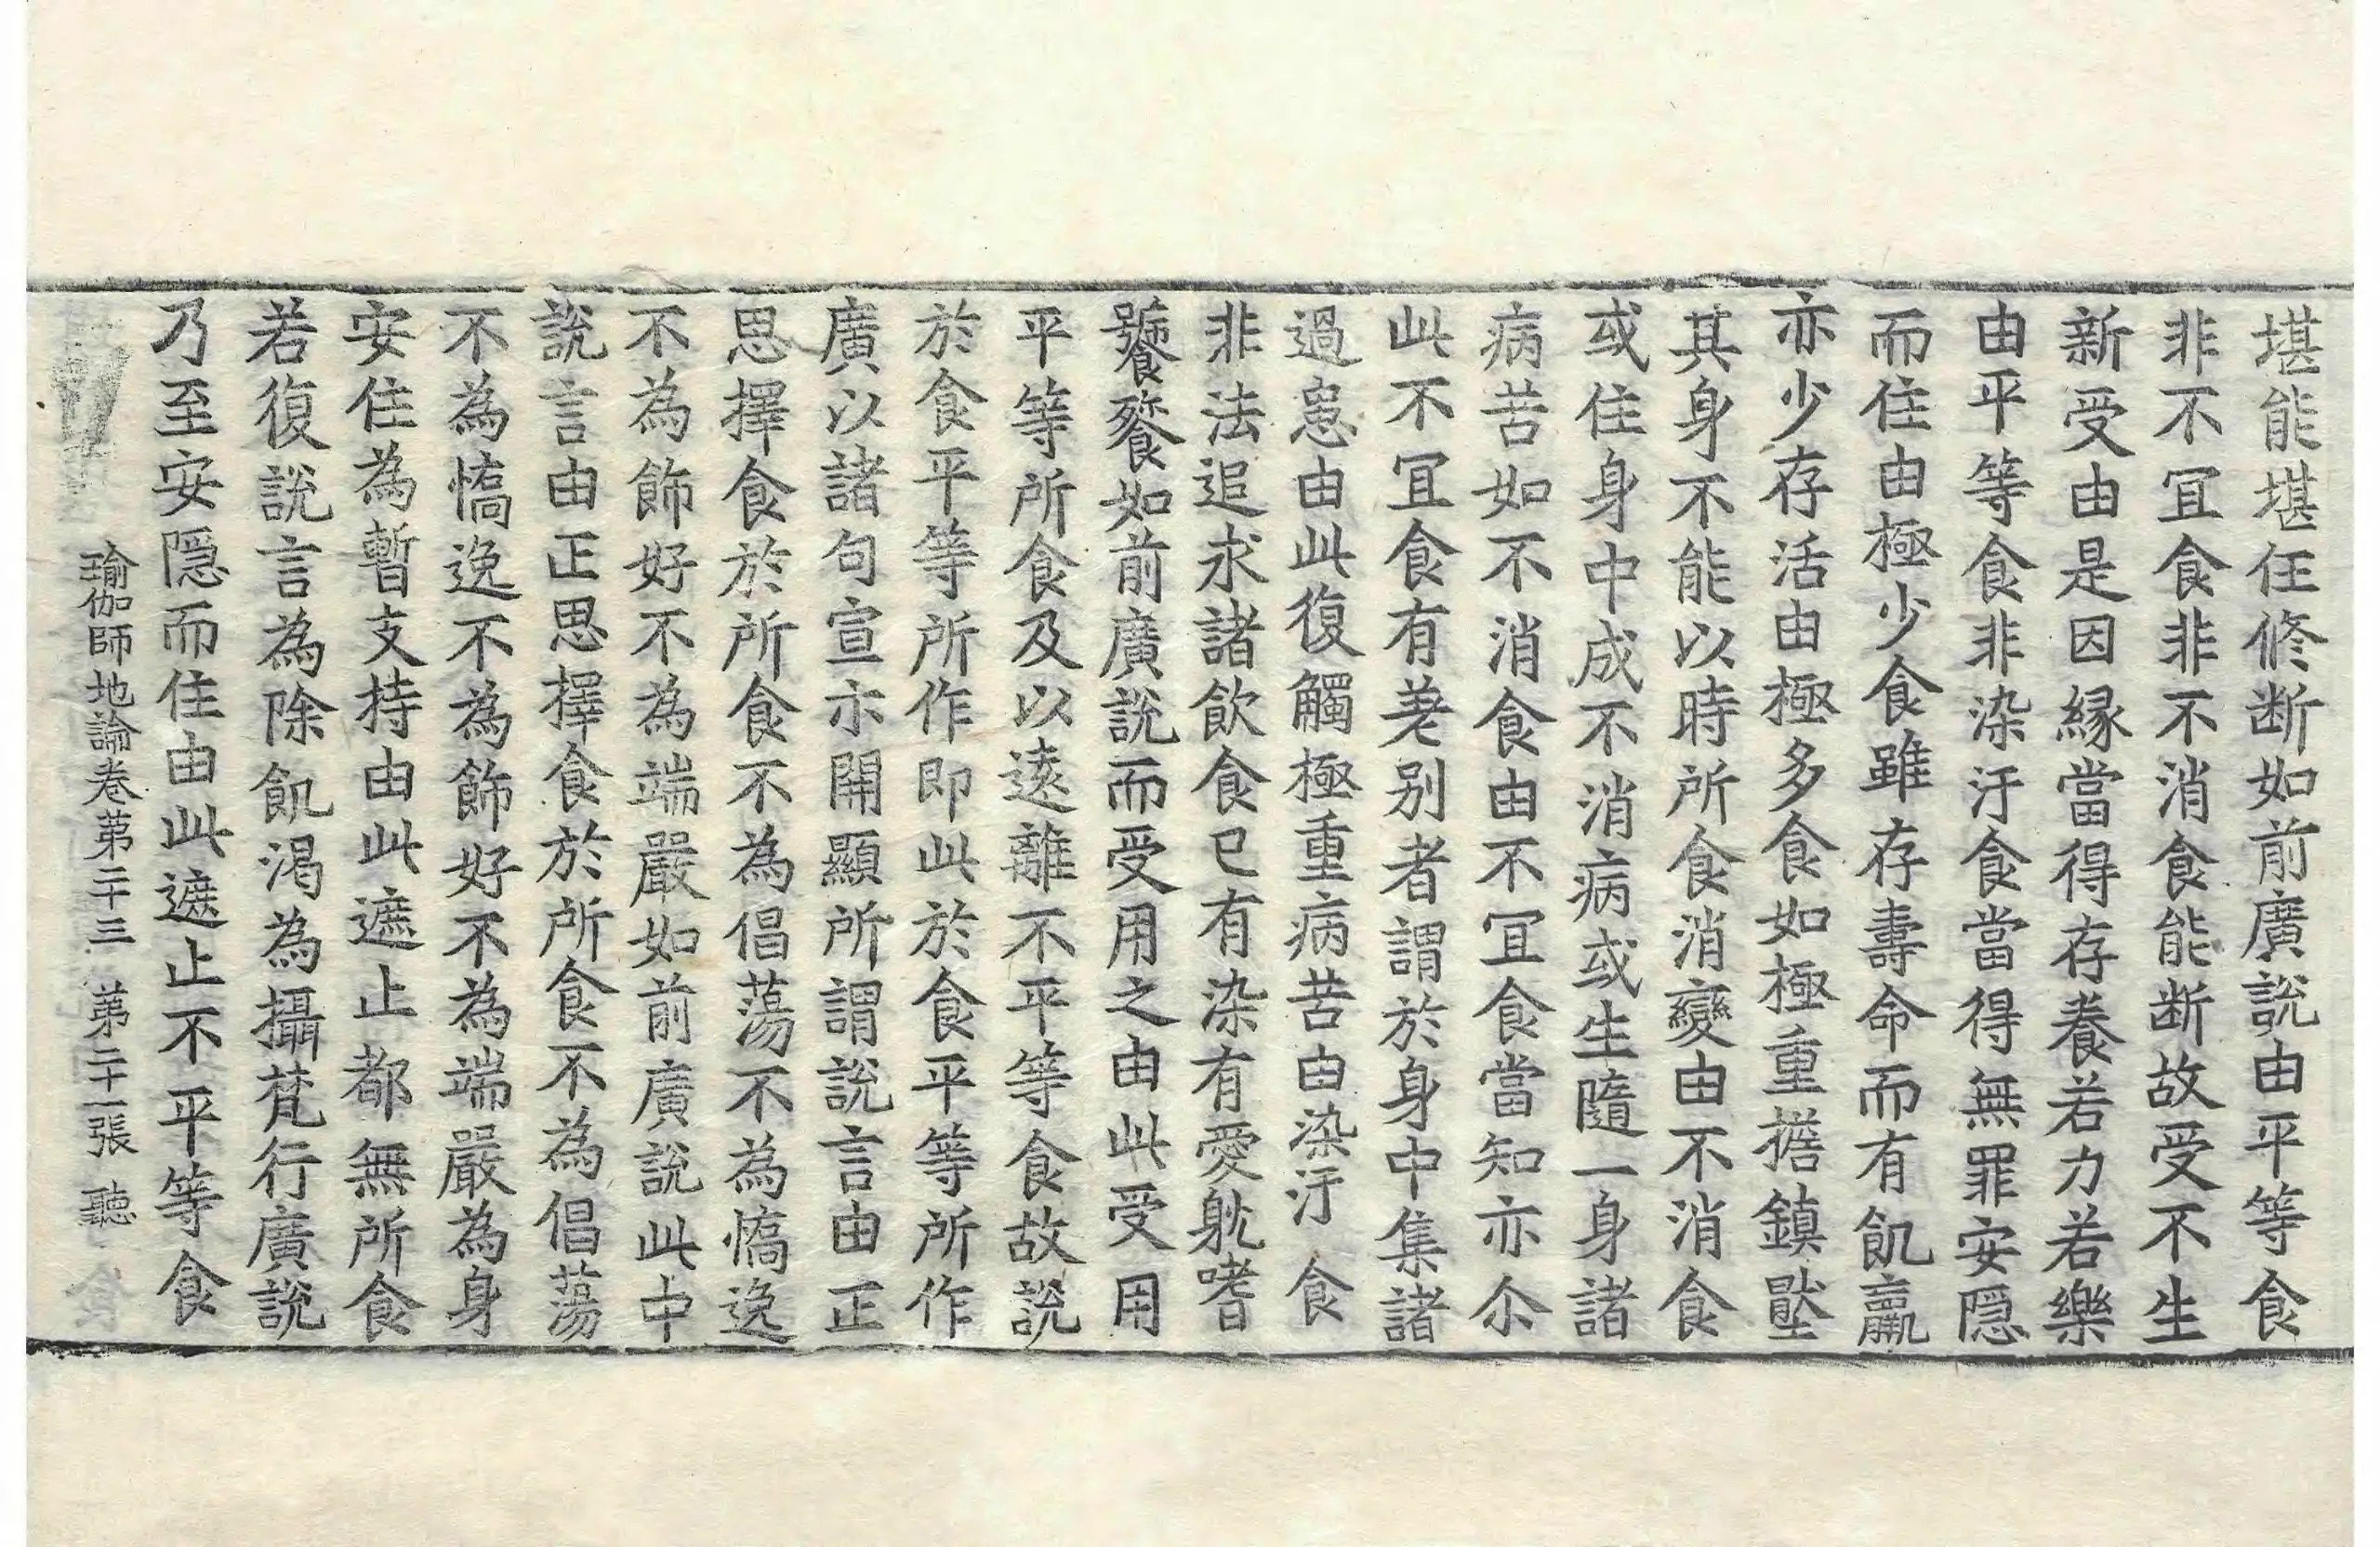 堪能堪任修断如前廣說由平等食
非不冝食非不消食能断故受不生
新受由是因縁當得存養若力若樂
由平等食非染汙食當得無罪安隠
而住由極少食雖存壽命而有飢羸
亦少存活由極多食如極重擔鎮壓
其身不能以時所食消變由不消食
或住身中成不消病或生隨一身諸
病苦如不消食由不冝食當知亦尒
此不冝食有差别者謂於身中集諸
過患由此復觸極重病苦由染汙食
非法追求諸飲食已有染有愛躭嗜
饕餮如前廣說而受用之由此受用
平等所食及以逺離不平等食故說
於食平等所作即此於食平等所作
廣以諸句宣示開顯所謂說言由正
思擇食於所食不為倡蕩不為憍逸
不為飾好不為端嚴如前廣說此中
說言由正思擇食於所食不為倡蕩
不為憍逸不為飾好不為端嚴為身
安住為暫支持由此遮止都無所食
若復說言為除飢渴為攝梵行廣說
乃至安隠而住由此遮止不平等食
瑜伽師地論卷第二十三 第二十一張 聽